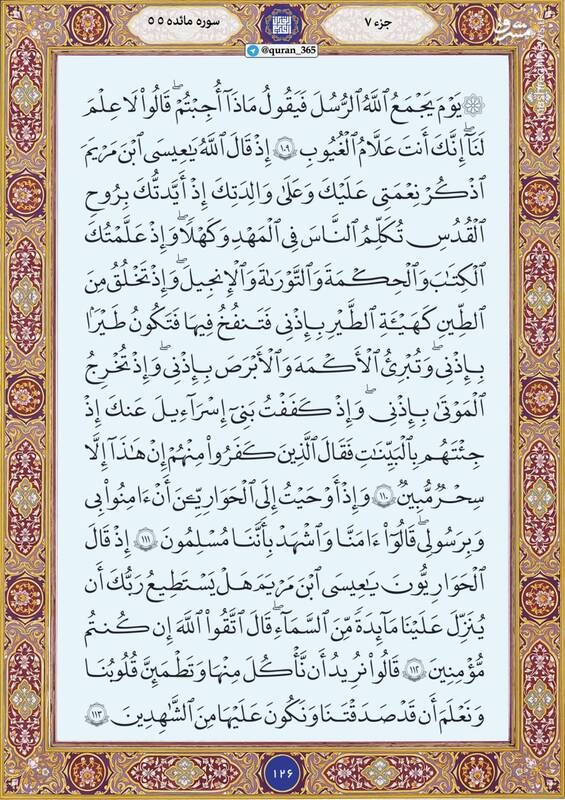 جزء ۷
سوره مائده ۵
@quran_365
مشرق
mashreghnews.ir
۞ يَوْمَ يَجْمَعُ ٱللَّهُ ٱلرُّسُلَ فَيَقُولُ مَاذَآ أُجِبْتُمْ ۖ قَالُوا۟ لَا عِلْمَ
لَنَآ ۖ إِنَّكَ أَنتَ عَلَّٰمُ ٱلْغُيُوبِ ١٠٩ إِذْ قَالَ ٱللَّهُ يَٰعِيسَى ٱبْنَ مَرْيَمَ
ٱذْكُرْ نِعْمَتِى عَلَيْكَ وَعَلَىٰ وَٰلِدَتِكَ إِذْ أَيَّدتُّكَ بِرُوحِ
ٱلْقُدُسِ تُكَلِّمُ ٱلنَّاسَ فِى ٱلْمَهْدِ وَكَهْلًا ۖ وَإِذْ عَلَّمْتُكَ
ٱلْكِتَٰبَ وَٱلْحِكْمَةَ وَٱلتَّوْرَىٰةَ وَٱلْإِنجِيلَ ۖ وَإِذْ تَخْلُقُ مِنَ
ٱلطِّينِ كَهَيْـَٔةِ ٱلطَّيْرِ بِإِذْنِى فَتَنفُخُ فِيهَا فَتَكُونُ طَيْرًۢا
بِإِذْنِى ۖ وَتُبْرِئُ ٱلْأَكْمَهَ وَٱلْأَبْرَصَ بِإِذْنِى ۖ وَإِذْ تُخْرِجُ
ٱلْمَوْتَىٰ بِإِذْنِى ۖ وَإِذْ كَفَفْتُ بَنِىٓ إِسْرَٰٓءِيلَ عَنكَ إِذْ
جِئْتَهُم بِٱلْبَيِّنَٰتِ فَقَالَ ٱلَّذِينَ كَفَرُوا۟ مِنْهُمْ إِنْ هَٰذَآ إِلَّا
سِحْرٌ مُّبِينٌ ١١٠ وَإِذْ أَوْحَيْتُ إِلَى ٱلْحَوَارِيِّـۧنَ أَنْ ءَامِنُوا۟ بِى
وَبِرَسُولِى قَالُوٓا۟ ءَامَنَّا وَٱشْهَدْ بِأَنَّنَا مُسْلِمُونَ ١١١ إِذْ قَالَ
ٱلْحَوَارِيُّونَ يَٰعِيسَى ٱبْنَ مَرْيَمَ هَلْ يَسْتَطِيعُ رَبُّكَ أَن
يُنَزِّلَ عَلَيْنَا مَآئِدَةً مِّنَ ٱلسَّمَآءِ ۖ قَالَ ٱتَّقُوا۟ ٱللَّهَ إِن كُنتُم
مُّؤْمِنِينَ ١١٢ قَالُوا۟ نُرِيدُ أَن نَّأْكُلَ مِنْهَا وَتَطْمَئِنَّ قُلُوبُنَا
وَنَعْلَمَ أَن قَدْ صَدَقْتَنَا وَنَكُونَ عَلَيْهَا مِنَ ٱلشَّٰهِدِينَ ١١٣
۱۲۶